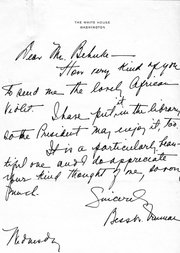 THE WHITE HOUSE
WASHINGTON
Dear Mr. Behnke –
How very kind of you
to send me the lovely African
Violet.
I have put it in the library
so the President may enjoy it, too.
It is a particularly beau-
tiful one and I do appreciate
your kind thought of me so very
much.
Sincerely
Bess W. Truman
Wednesday